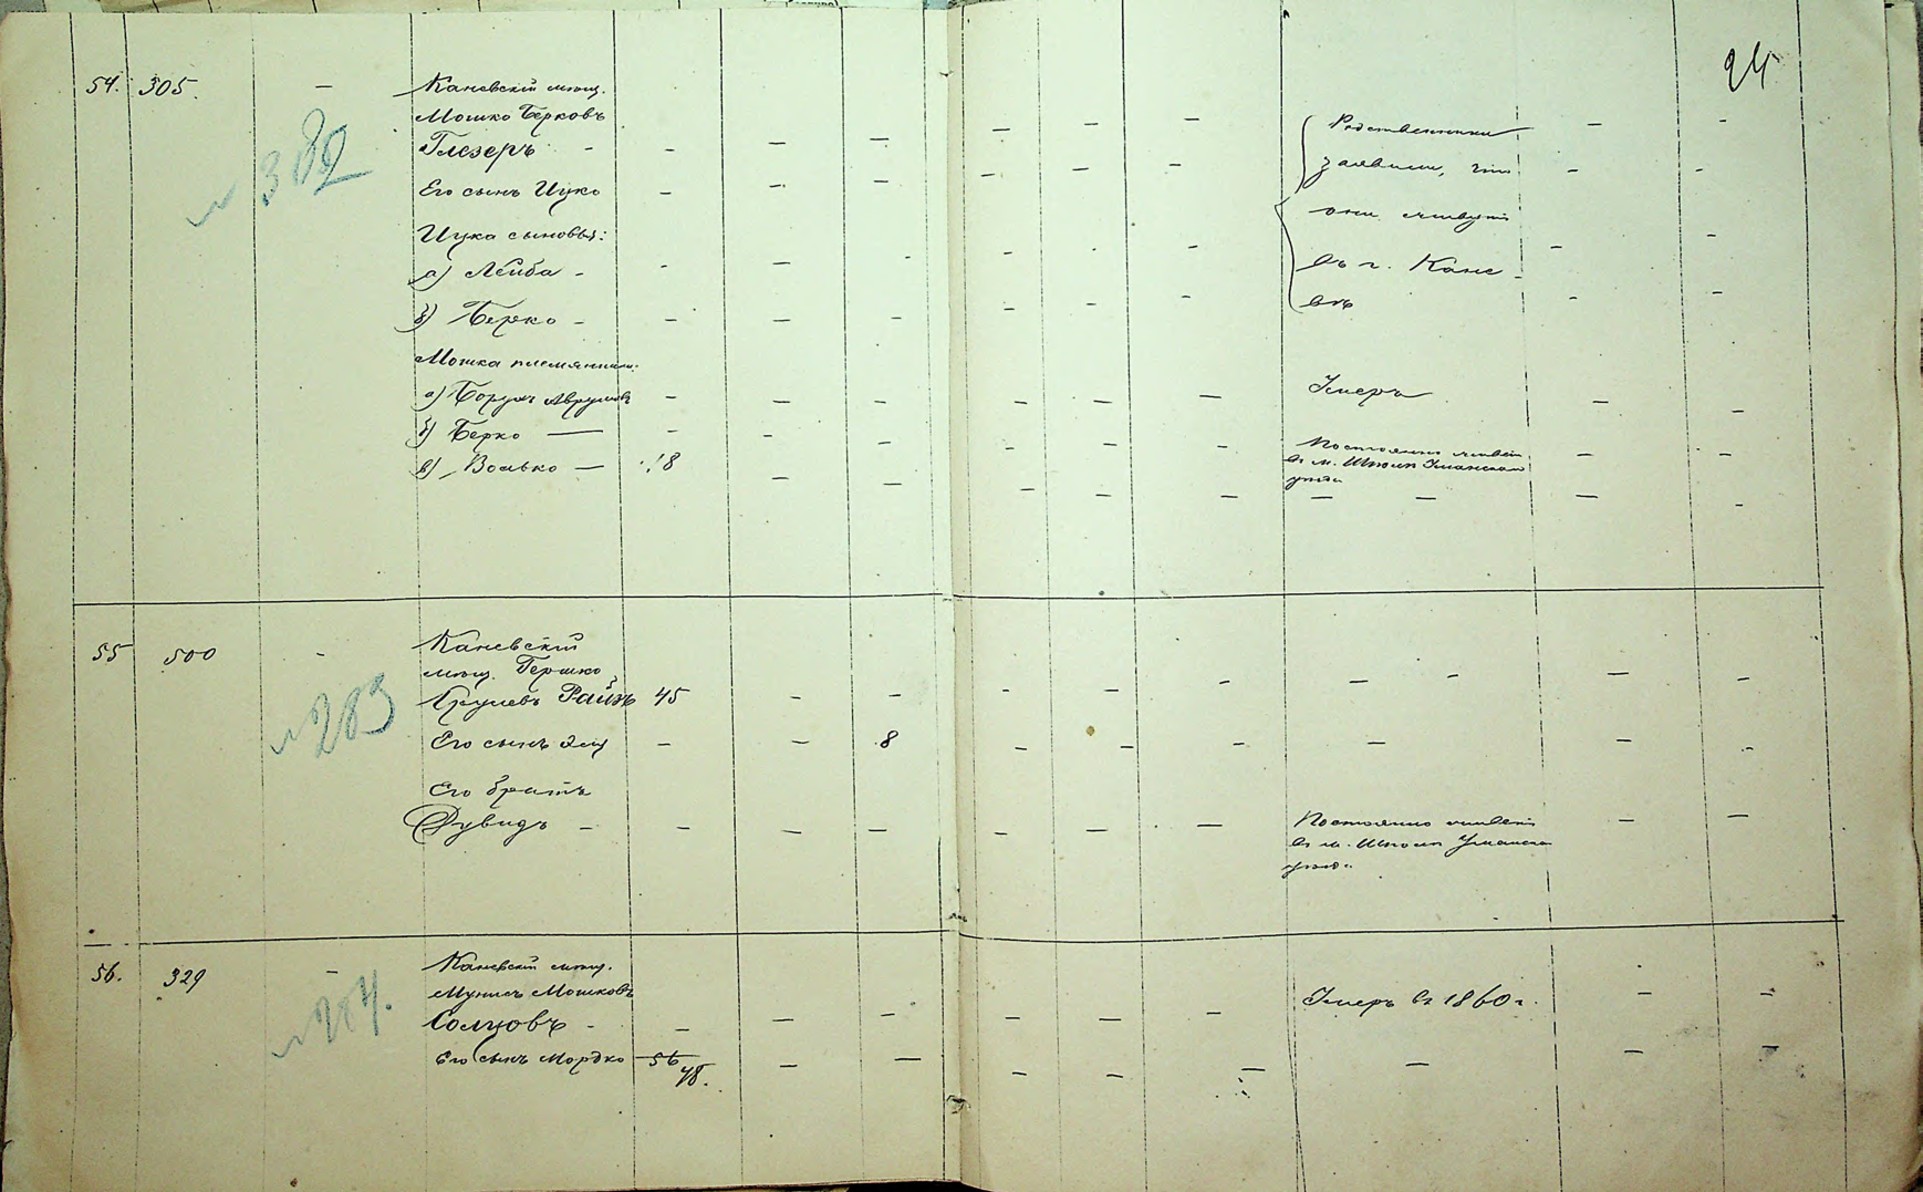 24
54. 305. — Каневскій мѣщ.
Мошко Берковъ — — — — — Родственники — —
Глезеръ - - — —
заявили, что
Его сынъ Ицко — — — — — —
они живутъ
Ицка сыновья:
а) Лейба - - — - — - — въ г. Кане-
б) Берко - — — — — — — вѣ — —
Мошка племянник.
а) Борухъ Аврумовъ — — — — — — Умеръ — —
б) Берко — — — — — — — Постоянно живетъ — —
въ м. Шполѣ Уманскаго
уѣзда
в) Волько — 18 — — — — — — — — —
№ 382
55 500 - Каневскій
мѣщ. Гершко
Сруlевъ Райзъ 45 — — — — — — — — —
№ 283
Его сынъ Эли — — 8 — — — — — —
Его братъ
Дувидъ — — — — — — — Постоянно живетъ — —
въ м. Шполѣ Уманска
уѣзда
56. 329 — Каневскій мѣщ.
Мунисъ Мошковъ
Солцовъ - — — — — — — Умеръ въ 1860 г. — —
№ 284.
Его сынъ Мордко 56 — — — — — — — —
48.